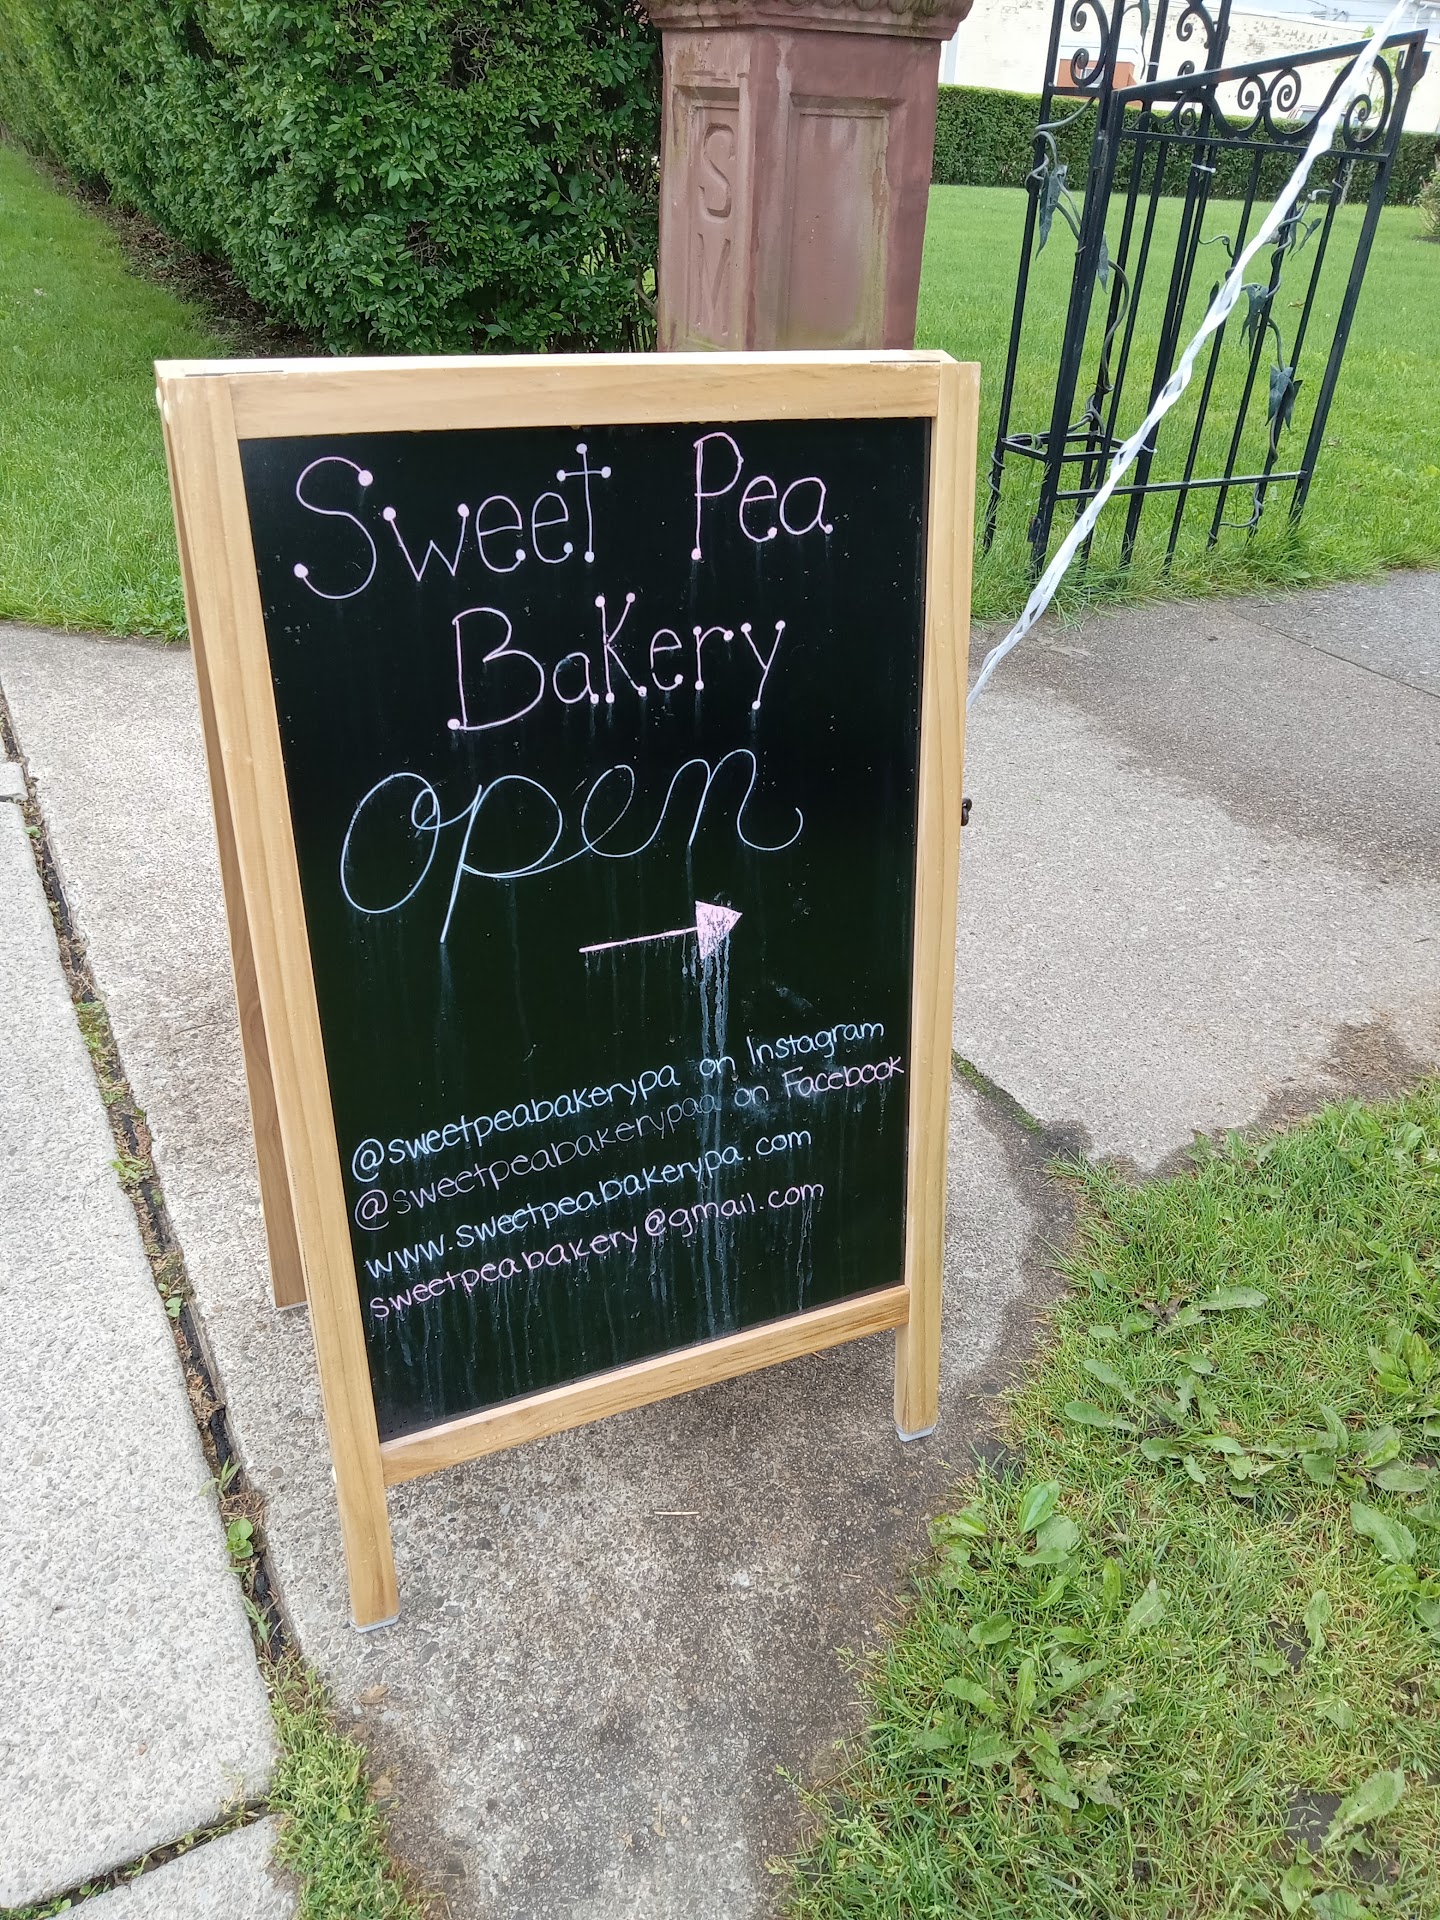 SM
Sweet Pea
Bakery
open
@sweetpeabakerypa on Instagram
@sweetpeabakerypaa on Facebook
www.sweetpeabakerypa.com
sweetpeabakery@gmail.com